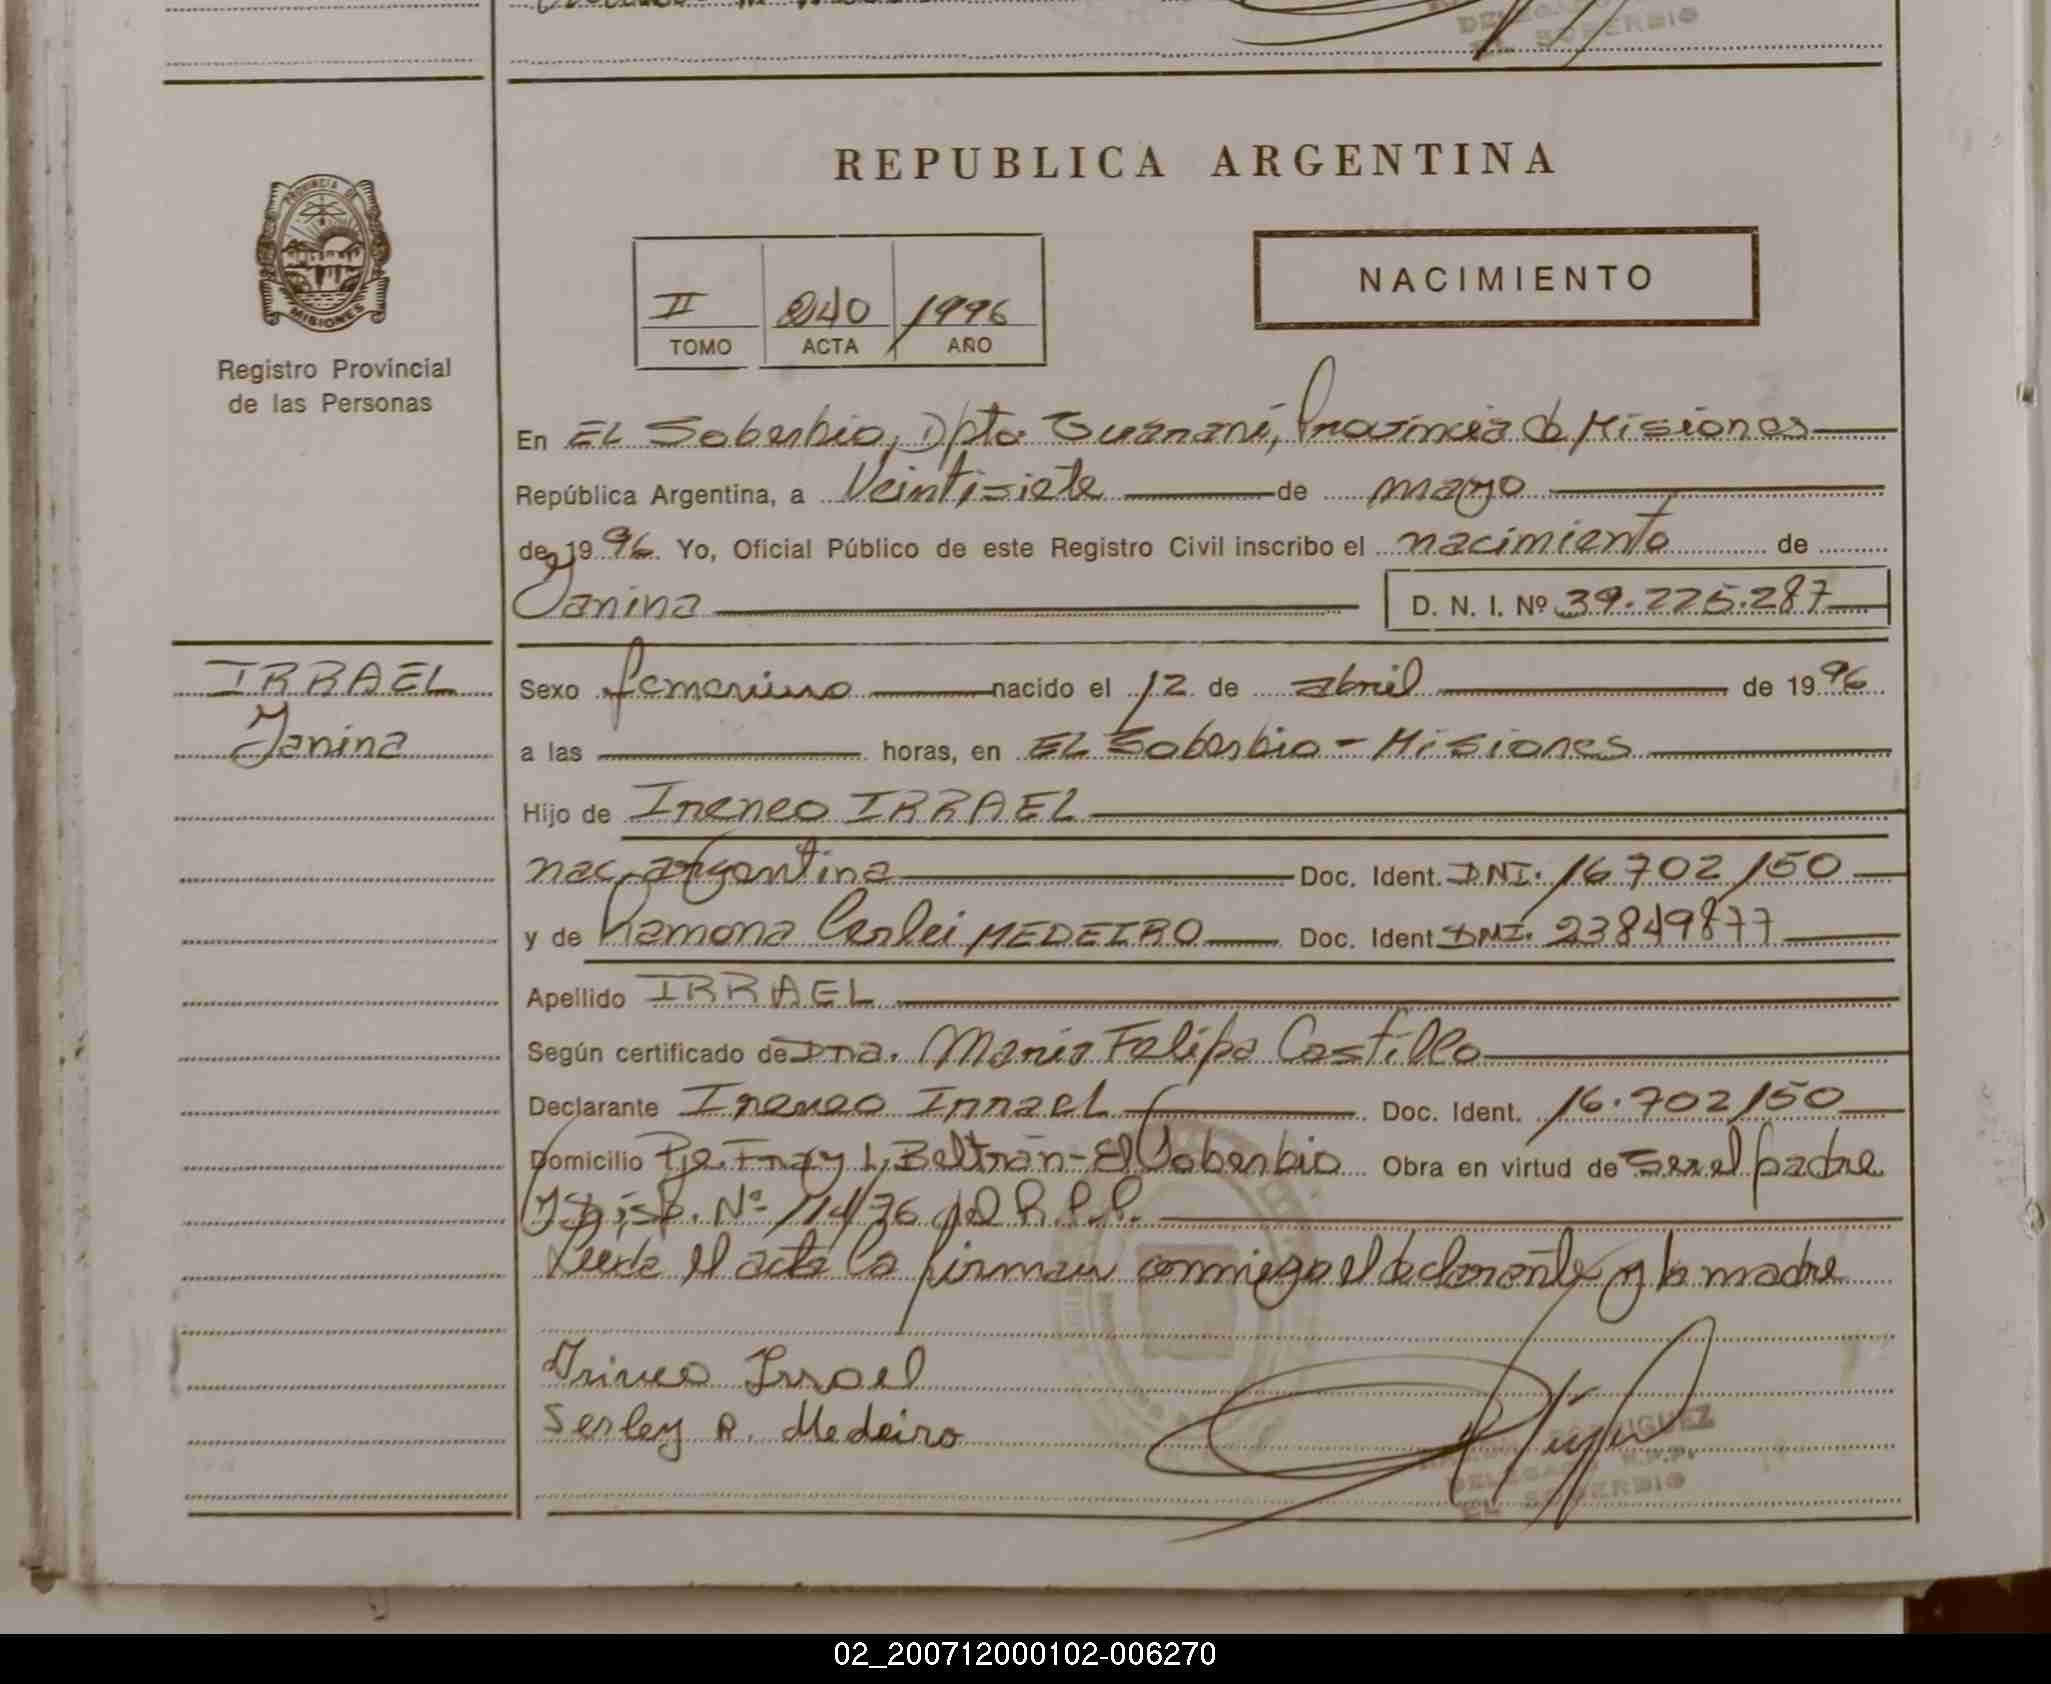 DELEGADO
EL SOBERBIO
REPUBLICA ARGENTINA
PROVINCIA DE
MISIONES
Registro Provincial
de las Personas
NACIMIENTO
II 240 1996
TOMO ACTA AÑO
En EL Soberbio, Dpto Guaraní, Provincia de Misiones
República Argentina, a Veintisiete de mayo
de 1996. Yo, Oficial Público de este Registro Civil inscribo el nacimiento de
Janina D. N. I. Nº 39.225.287
IRRAEL
Janina
Sexo femenino nacido el 12 de abril de 1996
a las horas, en EL Soberbio - Misiones
Hijo de Ireneo IRRAEL
nac. argentina Doc. Ident. DNI. 16.702150
y de Ramona MEDEIRO Doc. Ident DNI. 23849877
Apellido IRRAEL
Según certificado de Dña. Maria Felipa Castillo
Declarante Ireneo Irrael Doc. Ident. 16.702150
Domicilio Pje. Fray L. Beltrán - El Soberbio Obra en virtud de ser el padre
y Disp. Nº 114/76 del R.P.P.
Leida el acta la firman conmigo el declarante y la madre
Irineo Irrael
Serley R. Medeiro
RODRIGUEZ
DELEGADO R.P.P.
EL SOBERBIO
02_200712000102-006270